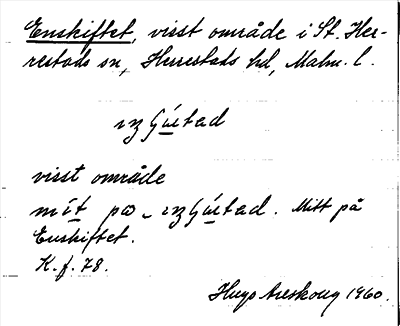 Enskiftet, visst område i St. Her-
restads sn, Herrestads hd, Malm. l.
visst område
mit på
Mitt på
Enskiftet.
K. f. 78.
Hugo Areskoug 1960.